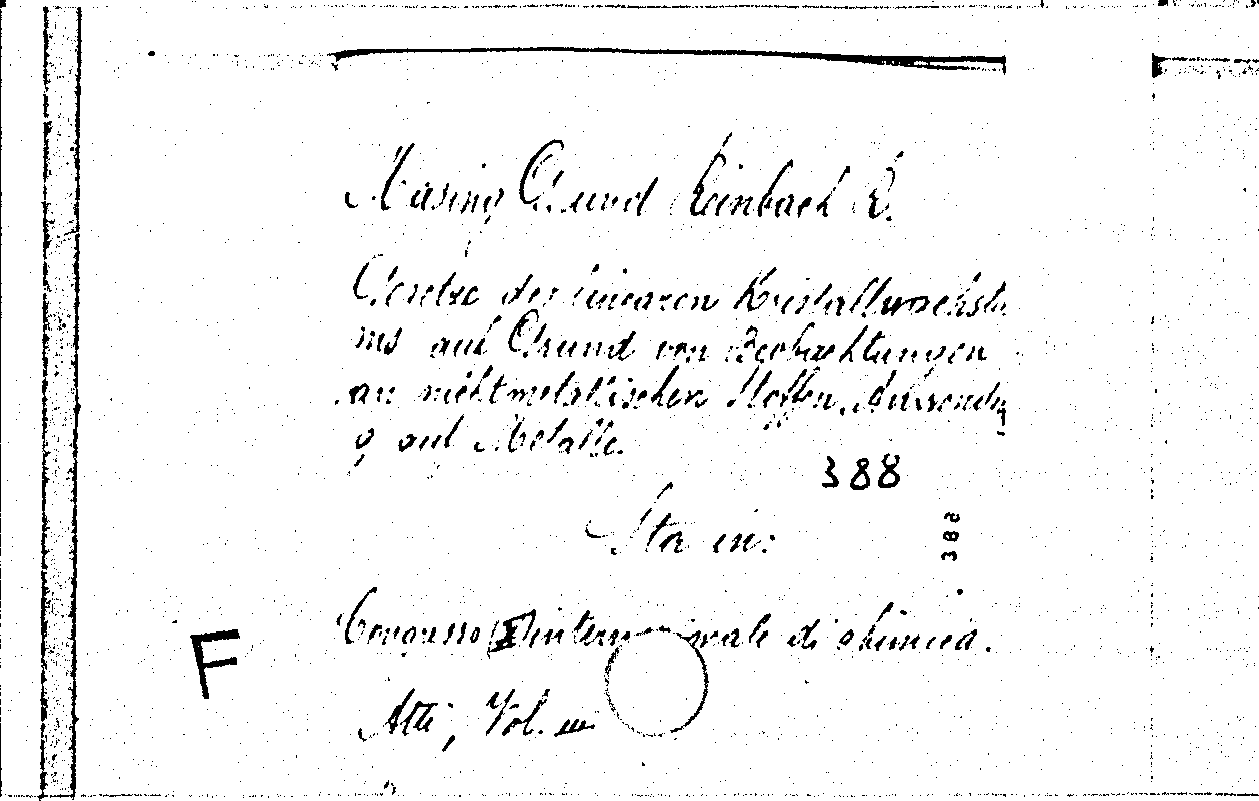 Masing G. und Reinbach R.
Gesetze des linearen Kristallwachstu
ms auf Grund von Beobachtungen
an nichtmetallischen Stoffen. Anwendun
g auf Metalle.
388
Sta in:
388
Congresso X internazionale di chimica.
F
Atti, Vol. III